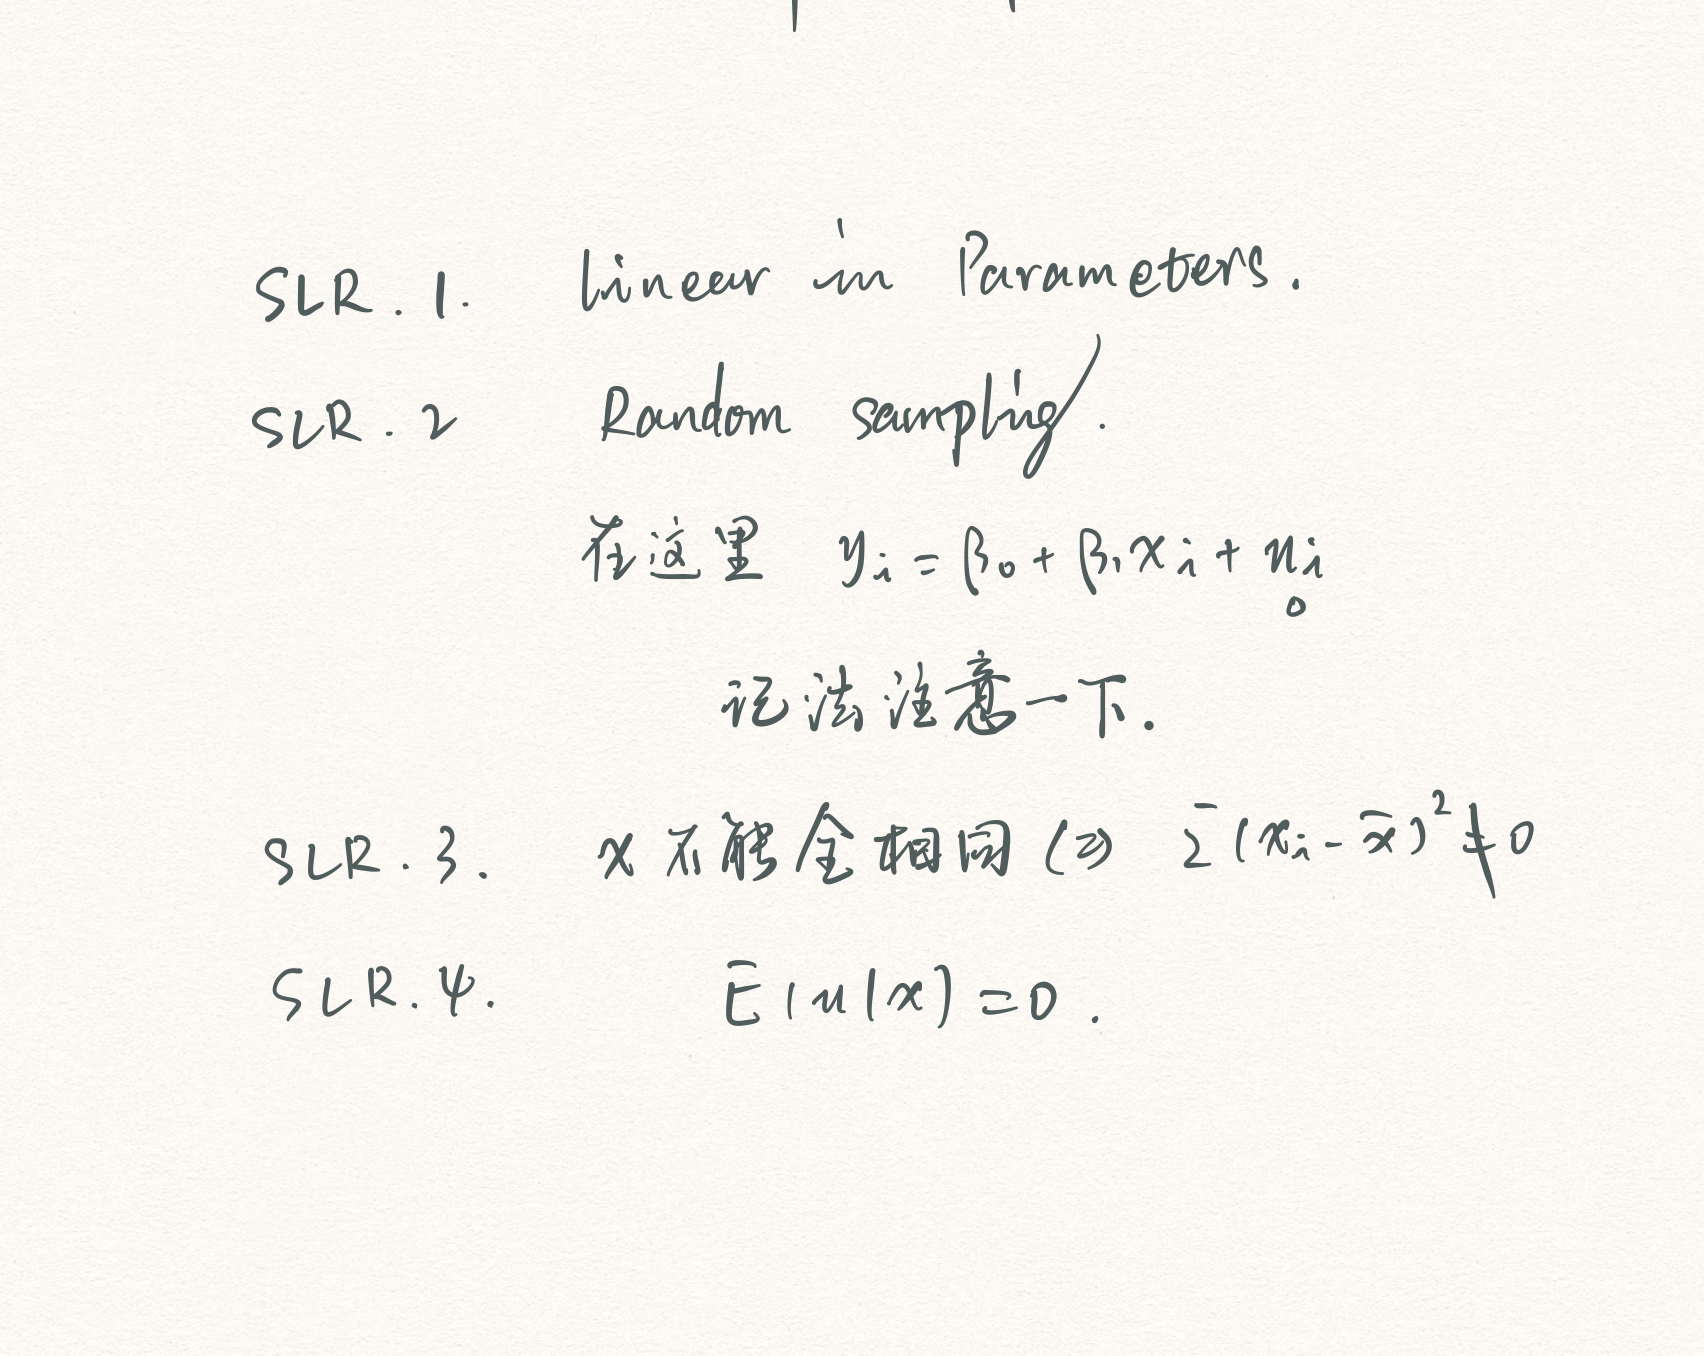 SLR.1. Linear in Parameters.
SLR.2 Random sampling.
在这里 yᵢ = β₀ + β₁xᵢ + uᵢ
记法注意一下.
SLR.3. x不能全相同 (⇒) Σ(xᵢ - x̄)² ≠ 0
SLR.4. E(u|x) = 0.